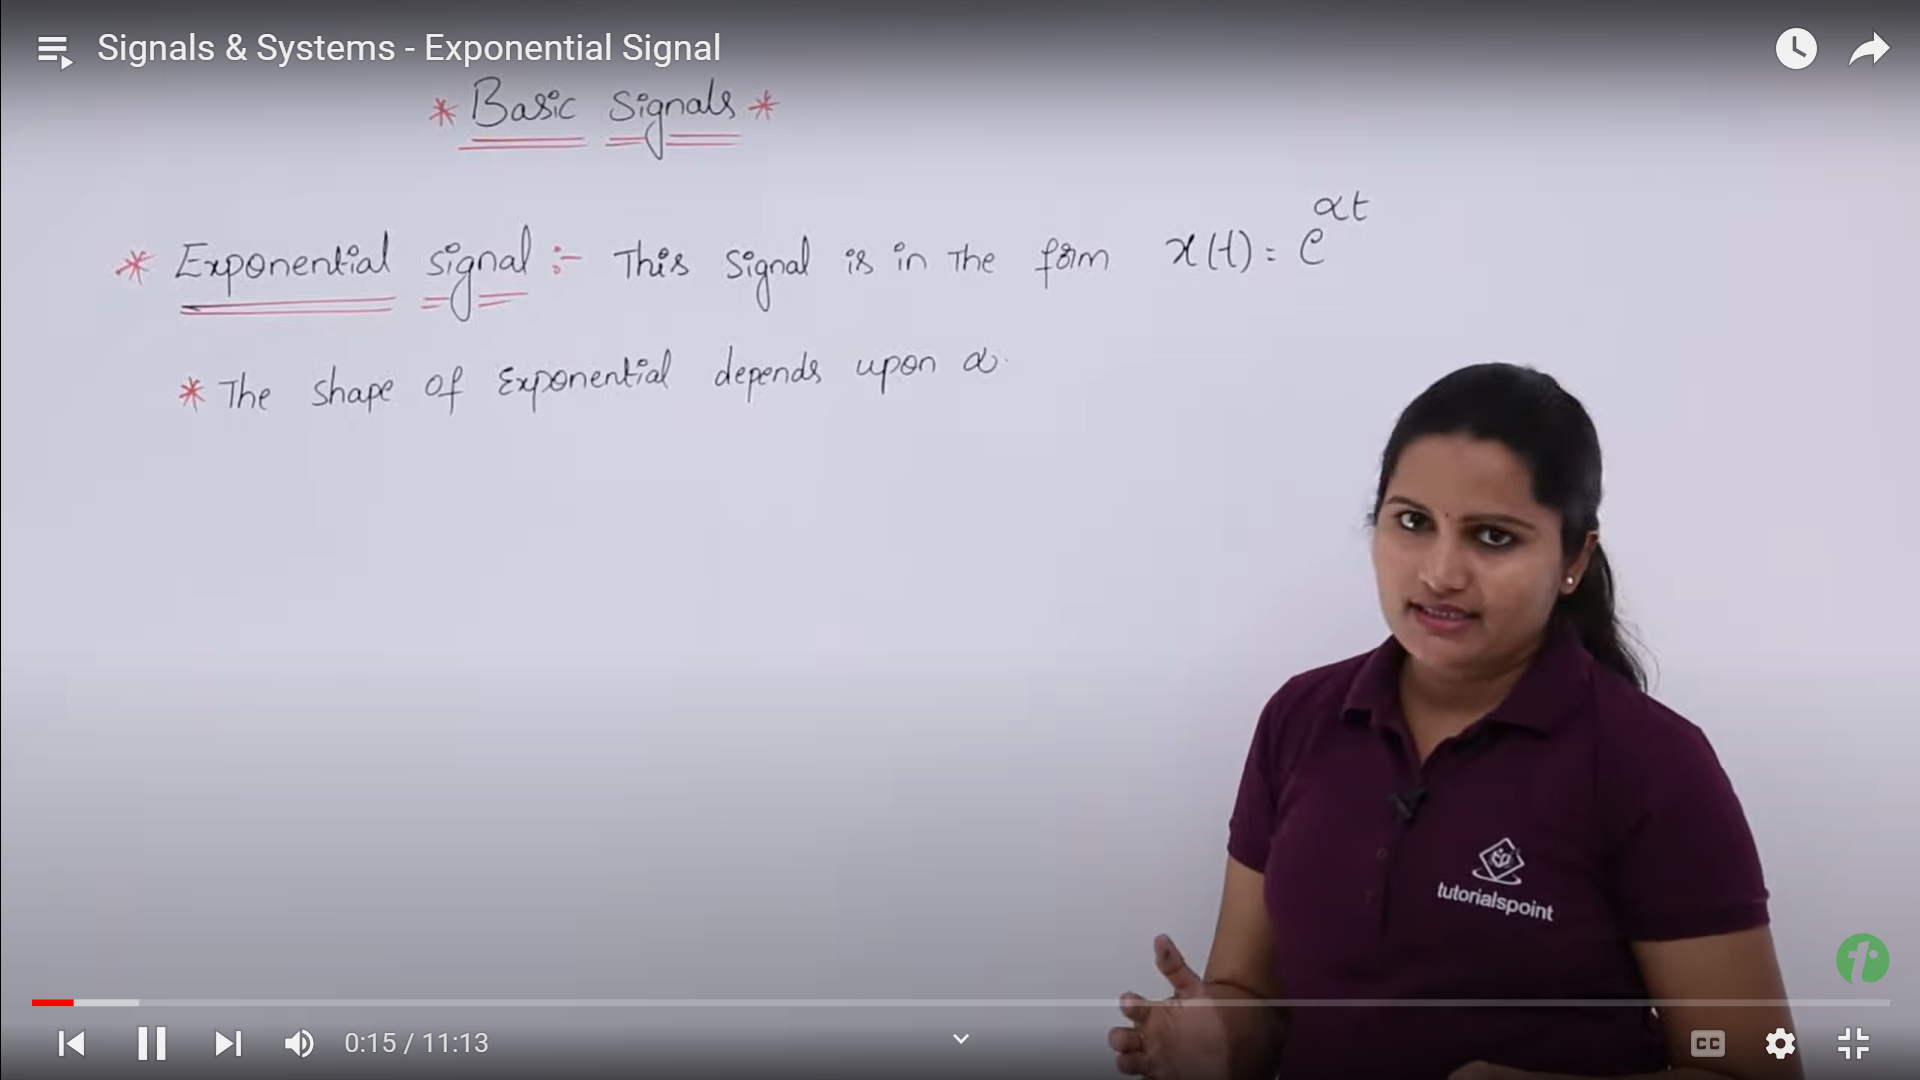 Signals & Systems - Exponential Signal
* Basic Signals *
* Exponential signal :- This signal is in the form x(t) = e^αt
* The shape of Exponential depends upon α.
tutorialspoint
0:15 / 11:13
CC